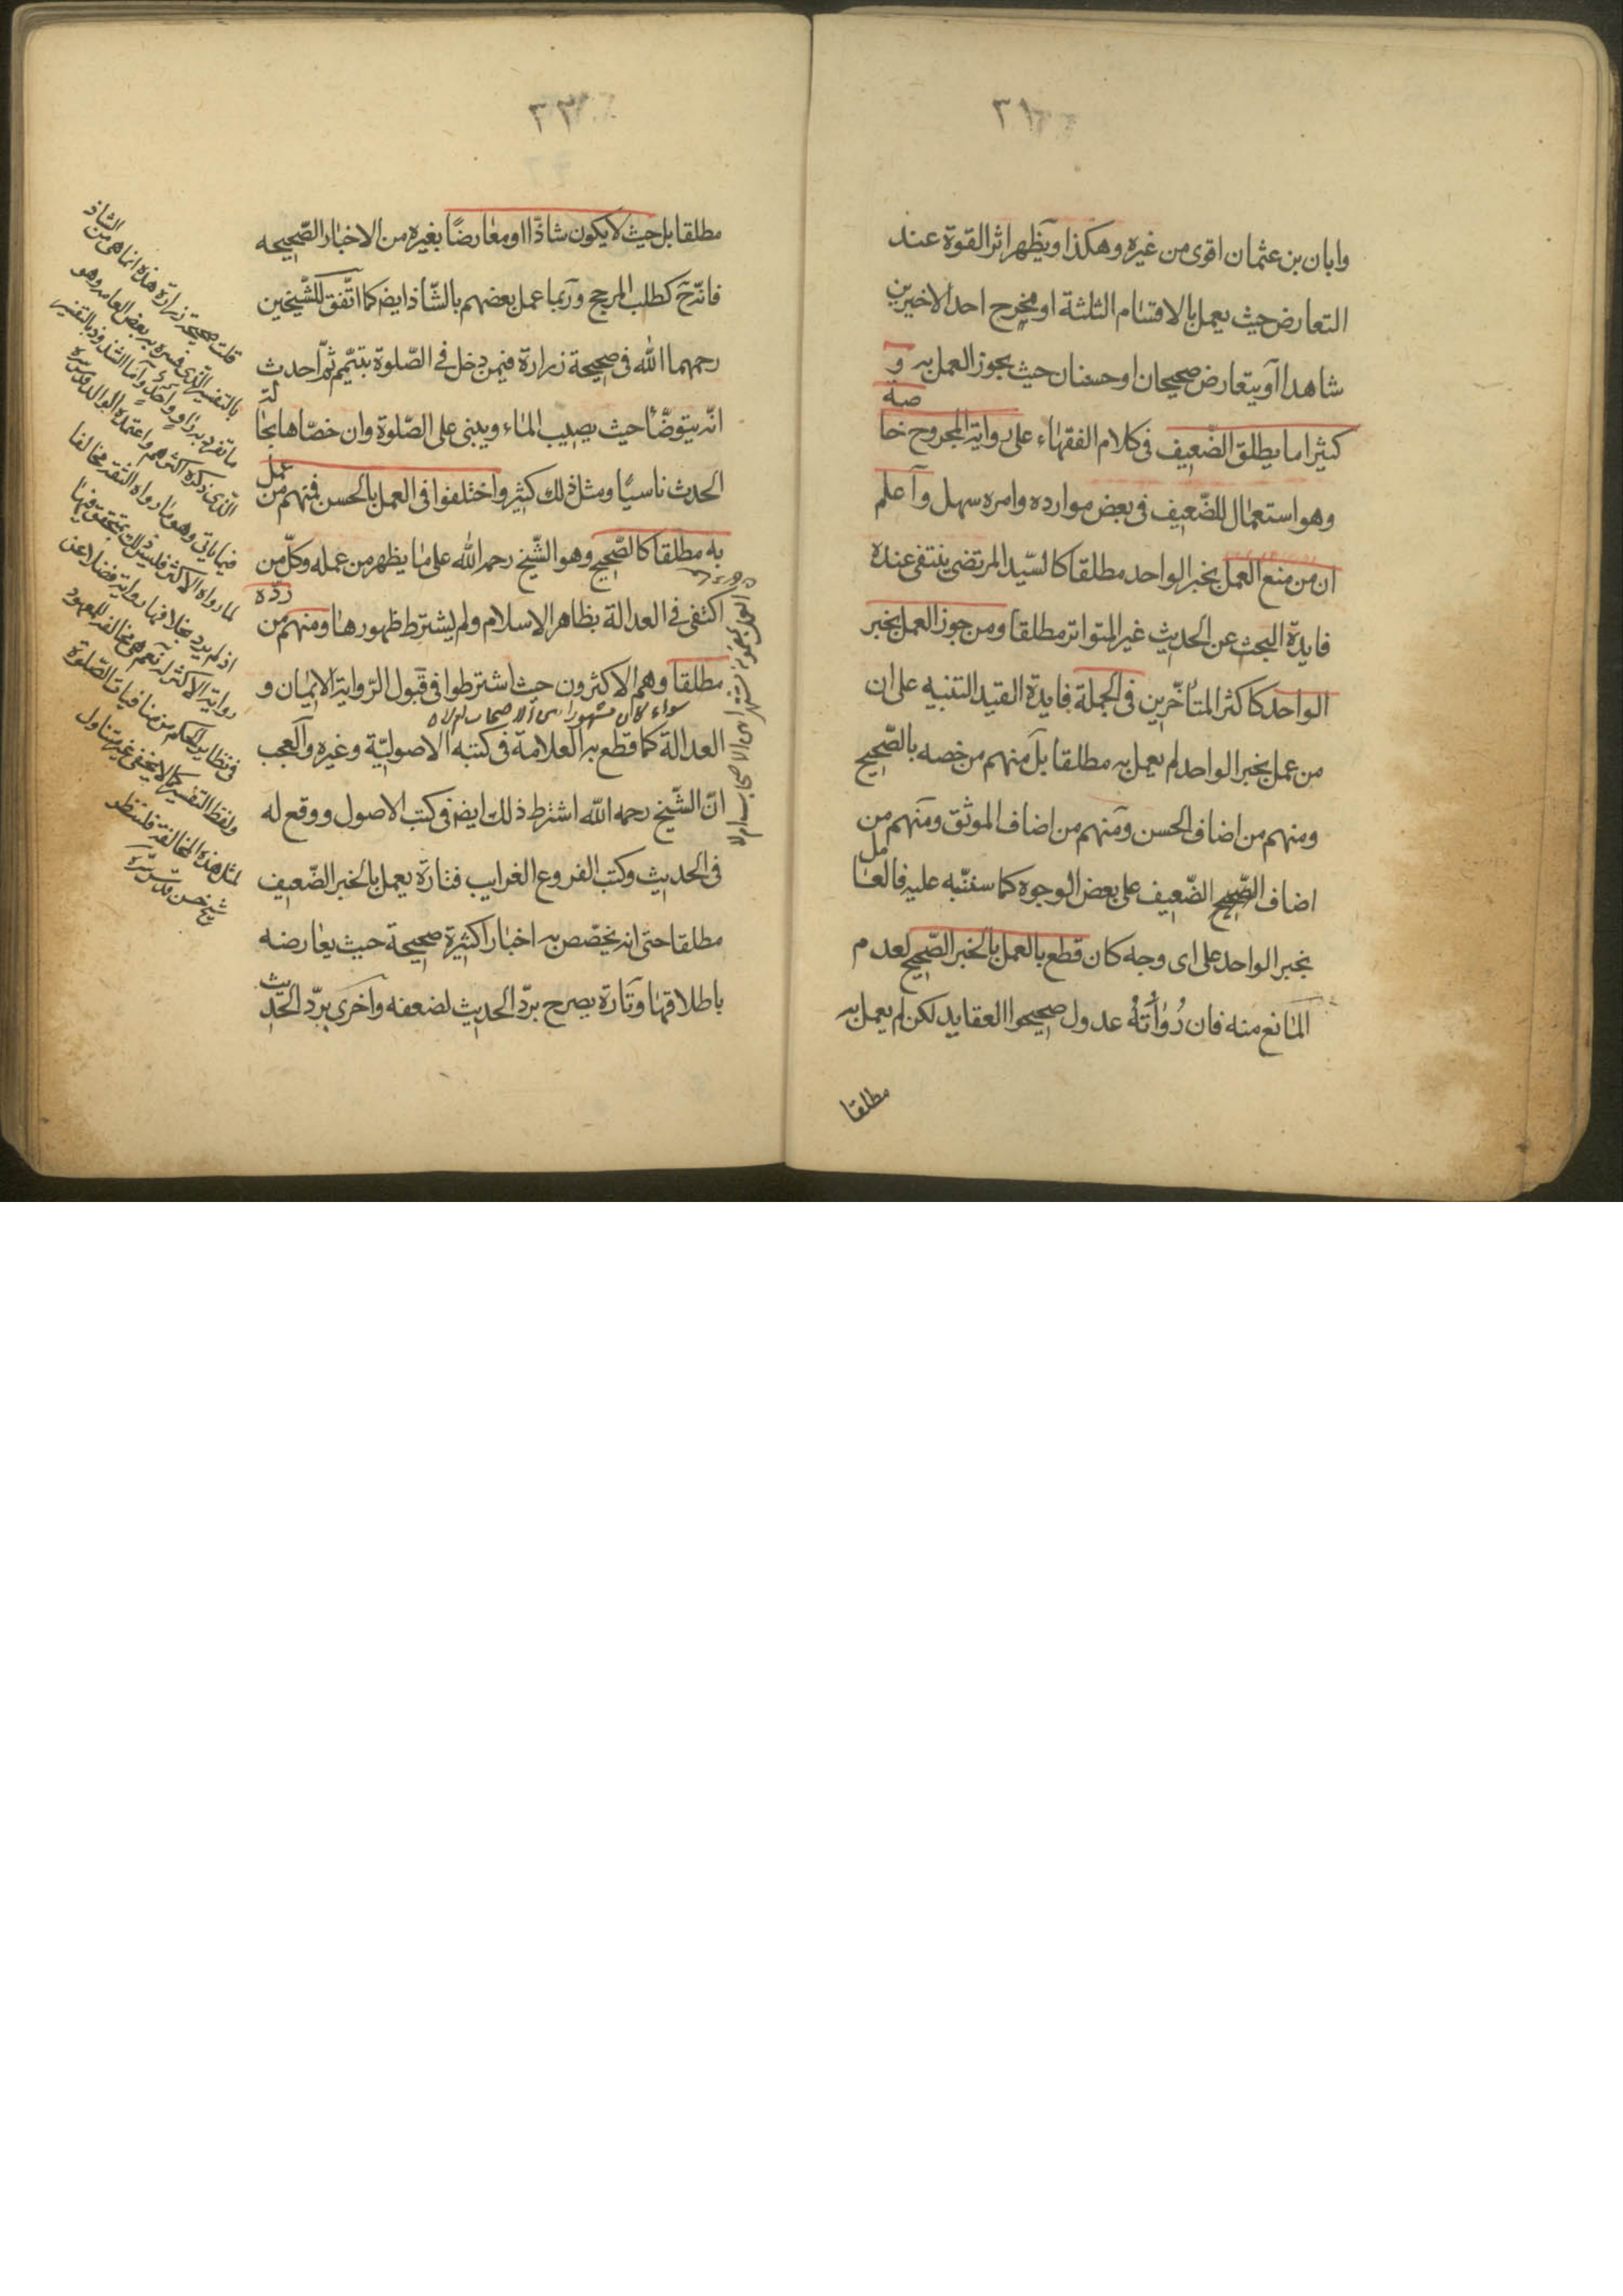 ٣١
وابان بن عثمان اقوى من غيره وهكذا ويظهر اثر القوة عند
التعارض حيث يعمل بالاقسام الثلثة او مخرج احد الاخيرين
شاهدا او يتعارض صحيحان او حسنان حيث يجوز العمل به و
كثيرا ما يطلق الضّعيف فى كلام الفقهاء على رواية المجروح خاصة
وهو استعمال للضّعيف فى بعض موارده وامره سهل واعلم
ان من منع العمل بخبر الواحد مطلقا كالسّيد المرتضى ينتفى عنده
فايدة البحث عن الحديث غير المتواتر مطلقا ومن جوز العمل بخبر
الواحد كاكثر المتأخّرين فى الجملة فايدة القيد التنبيه على ان
من عمل بخبر الواحد لم يعمل به مطلقا بل منهم من خصه بالصّحيح
ومنهم من اضاف الحسن ومنهم من اضاف الموثق ومنهم من
اضاف الصّحيح الضّعيف على بعض الوجوه كما سننبّه عليه فالعامل
بخبر الواحد على اى وجه كان قطع بالعمل بالخبر الصّحيح لعدم
المانع منه فان رُوٰاتَهُ عدول صحيحوا العقايد لكن لم يعمل به
مطلقا
٣٢
مطلقا بل حيث لا يكون شاذّا او معارضًا بغيره من الاخبار الصّحيحه
فانّه ح كطلب المرجح وربما عمل بعضهم بالشّاذ ايض كما اتّفق للشّيخين
رحمهما الله فى صحيحة زرارة فيمن دخل فى الصّلوة بتيمّم ثمّ احدث
انّه يتوضّأ حيث يصيب الماء ويبنى على الصّلوة وان خصّاها بحالة
الحدث ناسيًا ومثل ذلك كثير واختلفوا فى العمل بالحسن فمنهم من عمل
به مطلقا كالصّحيح وهو الشّيخ رحمه الله على ما يظهر من عمله وكلّ من
اكتفى فى العدالة بظاهر الاسلام ولم يشترط ظهورها ومنهم من ردّه
مطلقا وهم الاكثرون حيث اشترطوا فى قبول الرّواية الايمان و
سواء كان مشهورا بين الاصحاب ام لا
العدالة كما قطع به العلامة فى كتبه الاصوليّة وغيره والعجب
انّ الشّيخ رحمه الله اشترط ذلك ايض فى كتب الاصول ووقع له
فى الحديث وكتب الفروع الغرايب فتارة يعمل بالخبر الضّعيف
مطلقا حتى انه يخصّص به اخبارا كثيرة صحيحة حيث يعارضه
باطلاقها وتارة يصرح بردّ الحديث لضعفه واخرى بردّ الحديث
قلت صحيحة زرارة هذه انما هى من الشاذ
بالتفسير الّذى فسره به بعض العامه وهو
ما تفرد به راو واحد وامّا الشذوذ بالتفسير
الّذى ذكره اكثرهم واعتمده الوالد قدّس سره
فيما ياتى وهو ما رواه الثقه مخالفا
لما رواه الاكثر فليس ذلك بمتحقق فيها
اذ لم يرد بخلافها رواية فضلا عن
رواية الاكثر له نعم هى مخالفه للمعهود
فى نظاير الحكم من منافيات الصّلوة
ولفظ التفسير كما لا يخفى غير متناول
لمثل هذه المخالفة فلينظر
شيخ حسن قدّس سّره